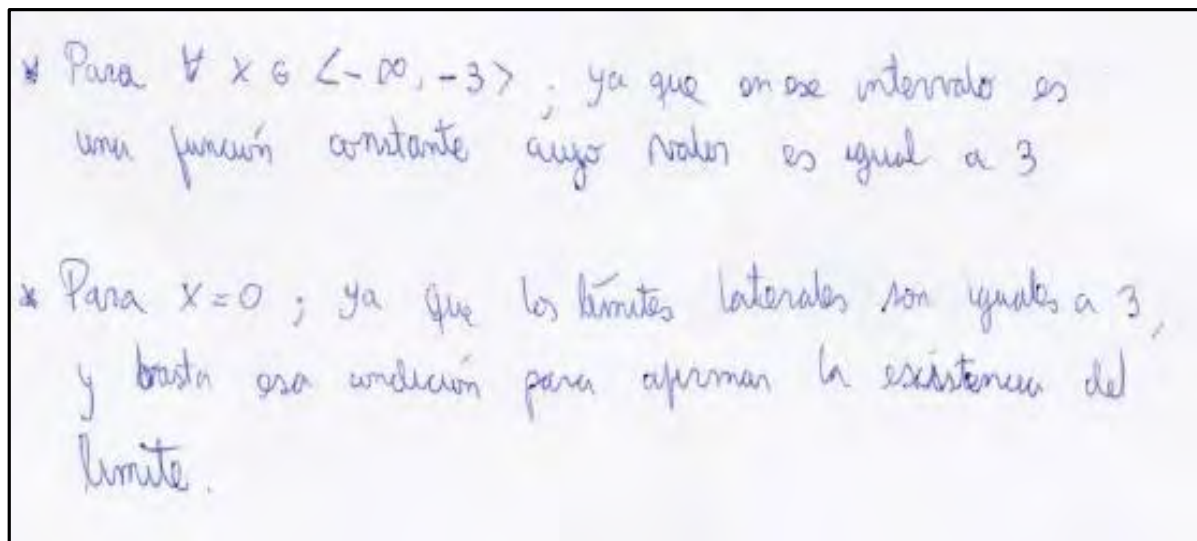 * Para ∀ x ∈ <-∞, -3> ; ya que en ese intervalo es
una función constante cuyo valor es igual a 3
* Para x=0 ; ya que los límites laterales son iguales a 3,
y basta esa condición para afirmar la existencia del
límite.